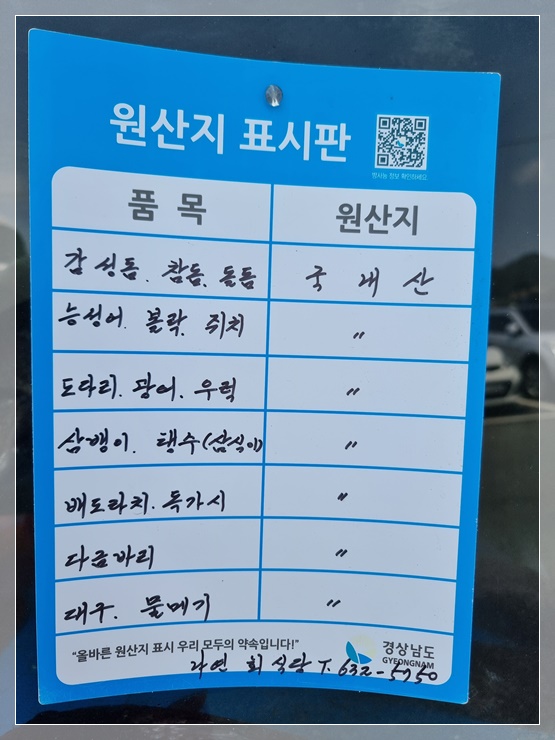 원산지 표시판
방사능 정보 확인하세요
품 목 원산지
감성돔. 참돔. 돌돔 국 내 산
능성어. 볼락. 쥐치 〃
도다리. 광어. 우럭 〃
삼뱅이. 탱수(삼식이) 〃
배도라치. 독가시 〃
다금바리 〃
대구. 물메기 〃
"올바른 원산지 표시 우리 모두의 약속입니다!"
경상남도
GYEONGNAM
자연 회 식당 T. 632-5750